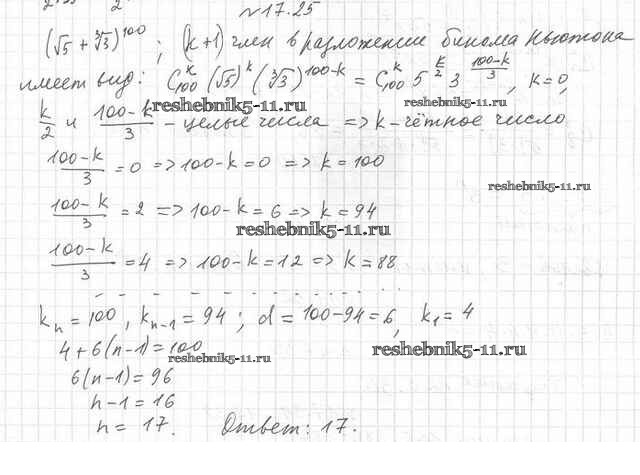 №17.25
(√5 + ∛3)^100 ; (k+1) член в разложении бинома Ньютона
имеет вид: C_100^k (√5)^k (∛3)^(100-k) = C_100^k 5^(k/2) 3^((100-k)/3), k=0,
reshebnik5-11.ru reshebnik5-11.ru
k/2 и (100-k)/3 - целые числа => k - чётное число
(100-k)/3 = 0 => 100-k = 0 => k = 100
reshebnik5-11.ru
(100-k)/3 = 2 => 100-k = 6 => k = 94
reshebnik5-11.ru
(100-k)/3 = 4 => 100-k = 12 => k = 88
- - - . . . . . . . . . .
k_n = 100, k_(n-1) = 94 ; d = 100-94 = 6, k_1 = 4
4+6(n-1) = 100
reshebnik5-11.ru reshebnik5-11.ru
6(n-1) = 96
n-1 = 16
n = 17. Ответ: 17.